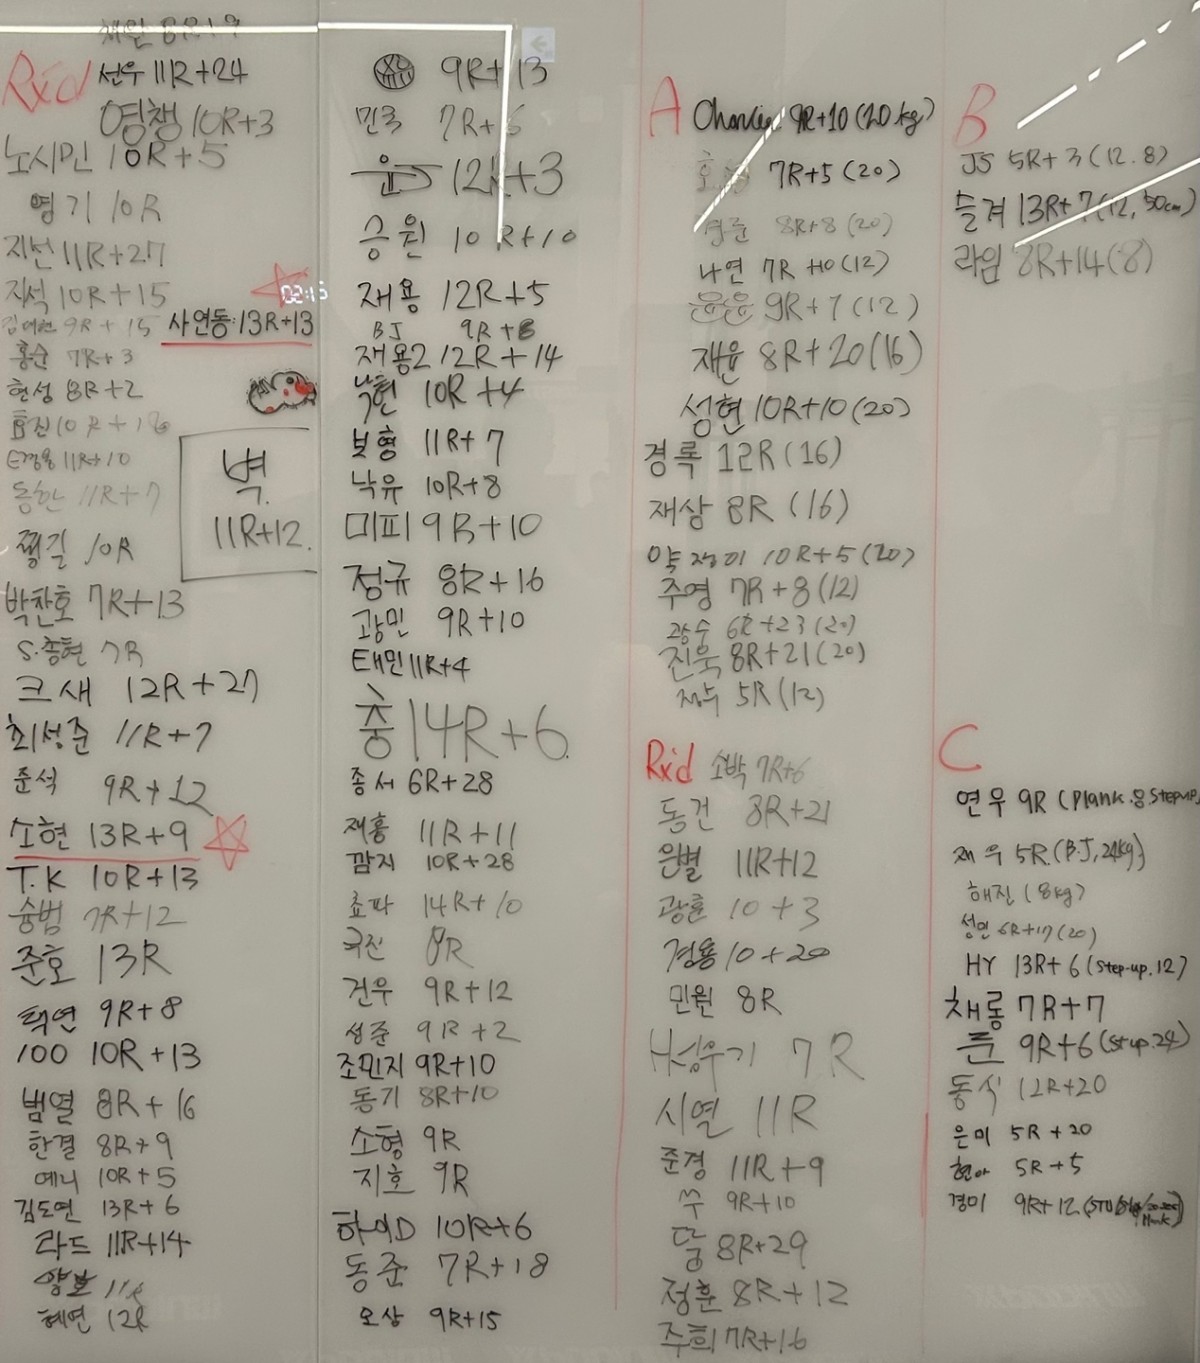 Rxd
선우 11R+24
영챙 10R+3
노시민 10R+5
영기 10R
지선 11R+27
지석 10R+15
9R+15
사연동:13R+13
홍순 7R+3
현성 8R+2
효진 10R+16
E경용 11R+10
동한 11R+7
벽.
11R+12.
평길 10R
박찬호 7R+13
S.총현 7R
크새 12R+27
최성준 11R+7
준석 9R+12
소현 13R+9
T.K 10R+13
숭범 7R+12
준호 13R
탁연 9R+8
100 10R+13
범열 8R+16
한결 8R+9
예니 10R+5
김도연 13R+6
라드 11R+14
혜연 12R
9R+13
민국 7R+6
윤 12R+3
승원 10R+10
재용 12R+5
BJ 9R+8
재용2 12R+14
낙현 10R+4
보형 11R+7
낙유 10R+8
미피 9R+10
정규 8R+16
광민 9R+10
태민 11R+4
충 14R+6
종서 6R+28
재홍 11R+11
깜지 10R+28
쵸파 14R+10
8R
건우 9R+12
성준 9R+2
조민지 9R+10
동기 8R+10
소형 9R
지호 9R
하이D 10R+6
동준 7R+18
오상 9R+15
A
9R+10 (20kg)
7R+5 (20)
8R+8 (20)
나연 7R+10 (12)
윤윤 9R+7 (12)
재윤 8R+20 (16)
성현 10R+10 (20)
경록 12R (16)
재상 8R (16)
약쟁이 10R+5 (20)
주영 7R+8 (12)
광수 6R+23 (20)
진욱 8R+21 (20)
5R (12)
Rx'd
소박 7R+6
동건 8R+21
은별 11R+12
광훈 10+3
경용 10+20
민원 8R
H성우기 7R
시열 11R
준경 11R+9
쑤 9R+10
뚱 8R+29
정훈 8R+12
주희 7R+16
B
JS 5R+3 (12.8)
슬겨 13R+7 (12, 50cm)
라임 8R+14 (8)
C
연우 9R (Plank.8 Stepup)
재우 5R. (B.J, 24kg)
해진 (8kg)
성연 6R+17 (20)
HY 13R+6 (Step-up.12)
채롱 7R+7
9R+6 (St up.24)
동식 12R+20
은미 5R+20
현아 5R+5
경미 9R+12